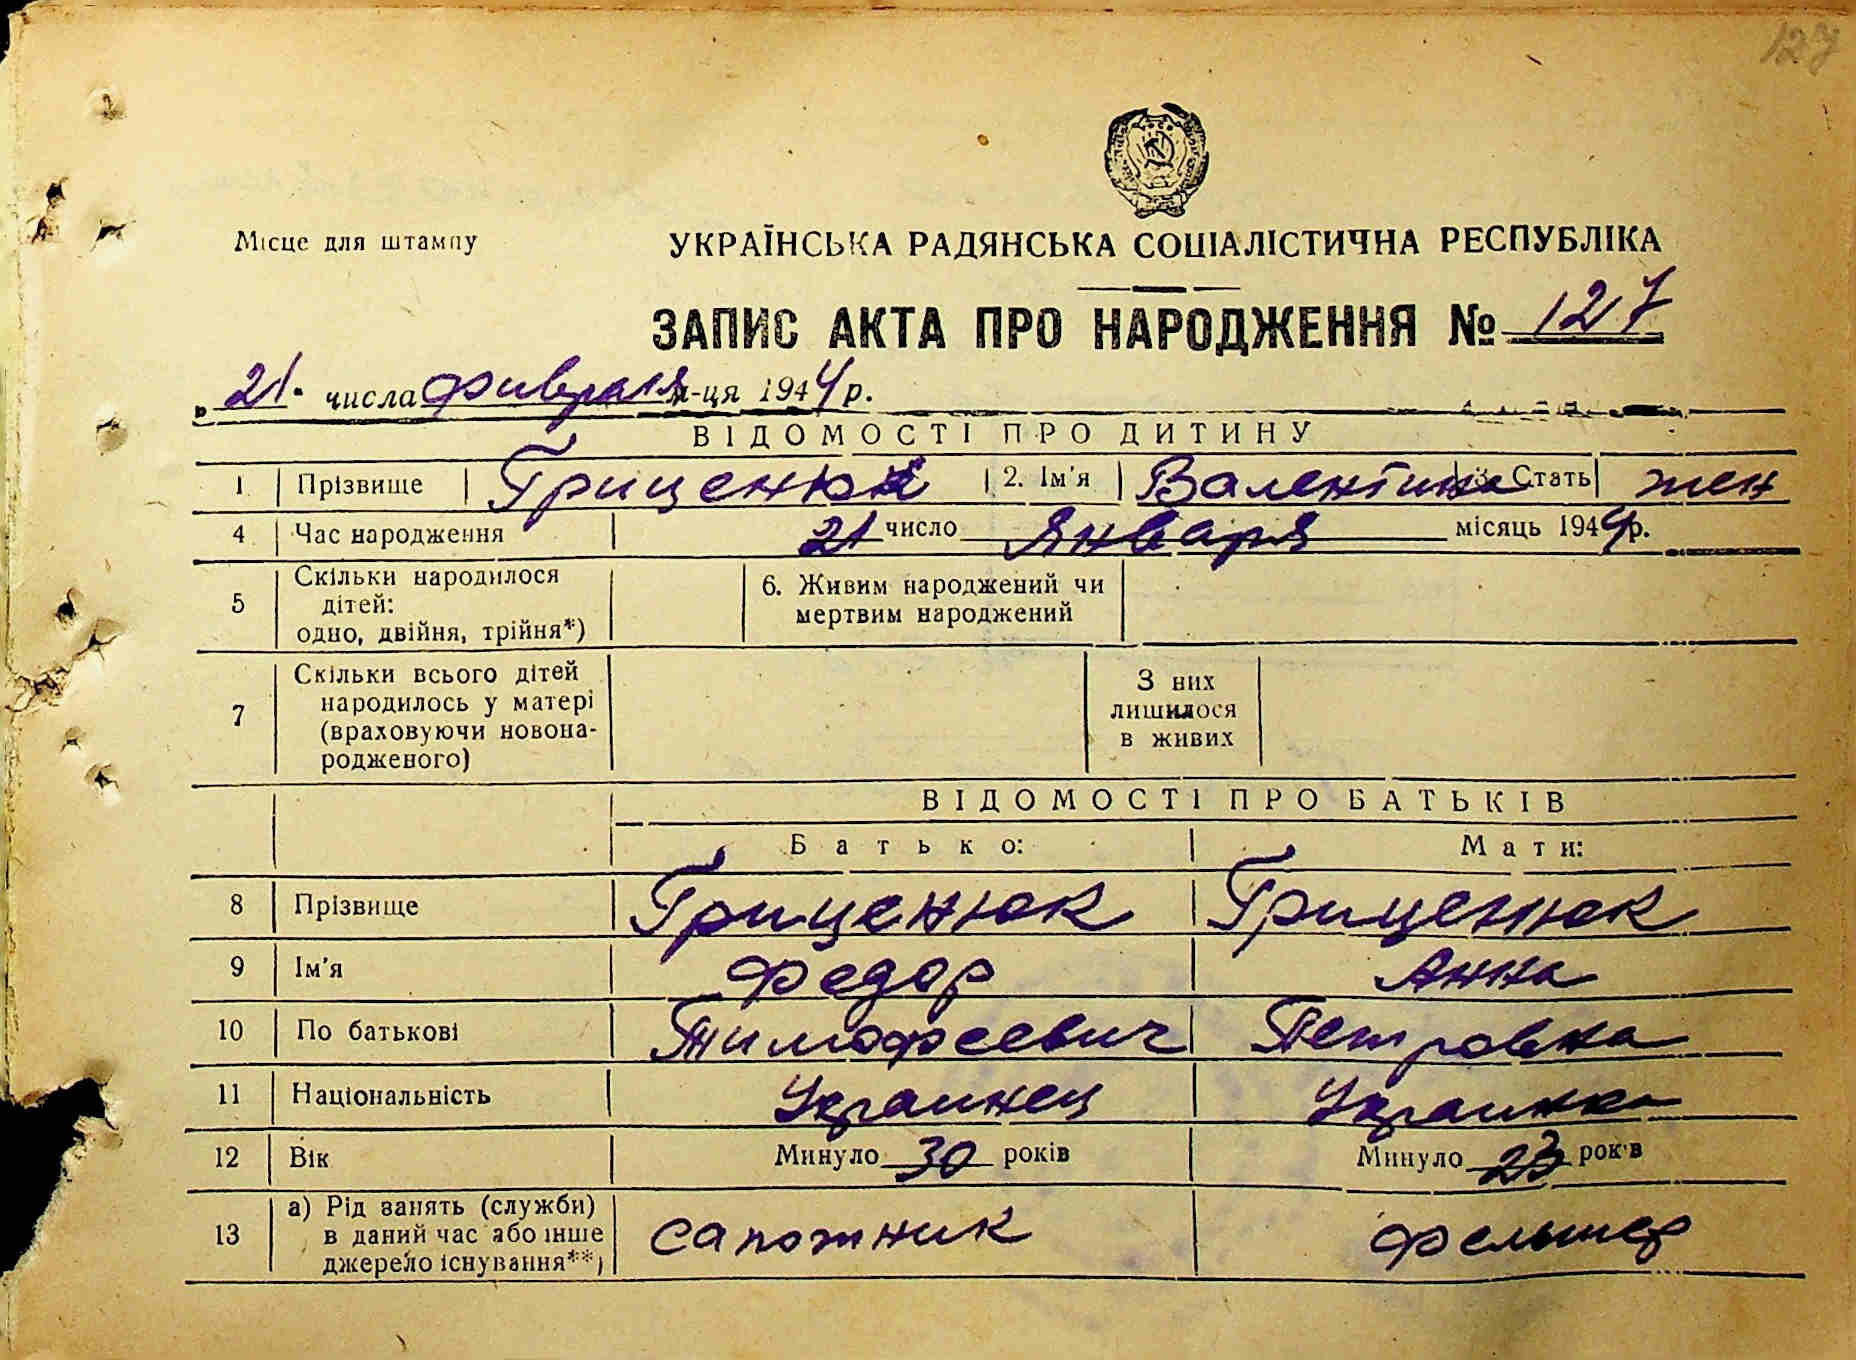 127
Місце для штампу
УКРАЇНСЬКА РАДЯНСЬКА СОЦІАЛІСТИЧНА РЕСПУБЛІКА
ЗАПИС АКТА ПРО НАРОДЖЕННЯ № 127
„ 21. числа Фивраля м-ця 1944 р.
ВІДОМОСТІ ПРО ДИТИНУ
1 Прізвище Гриценюк 2. Ім'я Валентина 3. Стать жен
4 Час народження 21 число Января місяць 1944 р.
5 Скільки народилося дітей: одно, двійня, трійня*) 6. Живим народжений чи мертвим народжений
7 Скільки всього дітей народилось у матері (враховуючи новонародженого) З них лишилося в живих
ВІДОМОСТІ ПРО БАТЬКІВ
Батько: Мати:
8 Прізвище Гриценюк Гриценюк
9 Ім'я Федор Анна
10 По батькові Тимофеевич Петровна
11 Національність Украинец Украинка
12 Вік Минуло 30 років Минуло 23 років
13 а) Рід занять (служби) в даний час або інше джерело існування**) сапожник фельшер